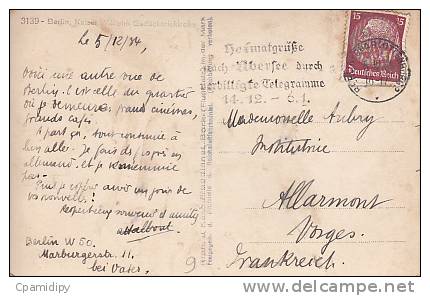 3139 - Berlin, Kaiser Wilhelm Gedächtniskirche
Le 5/12/34,
Voici une autre vue de
Berlin. C'est celle du quartier
où je demeure, grand cinémas,
grands cafés.
A part ça, tout continue à
bien aller. Je fais des progrès en
allemand et je m'ennuie
pas.
J'espère avoir un jour de
vos nouvelles!
souvenir d'amitié
Berlin W 50.
Marburgerstr. 11.
bei Vater.
Heimatgrüße
nach Übersee durch
verbilligte Telegramme
14.12. - 6.1.
15 15
Deutsches Reich
Mademoiselle Aubry
Institutrice
Allarmont
Vosges.
Frankreich.
9
Cpamidipy
delcampe.net